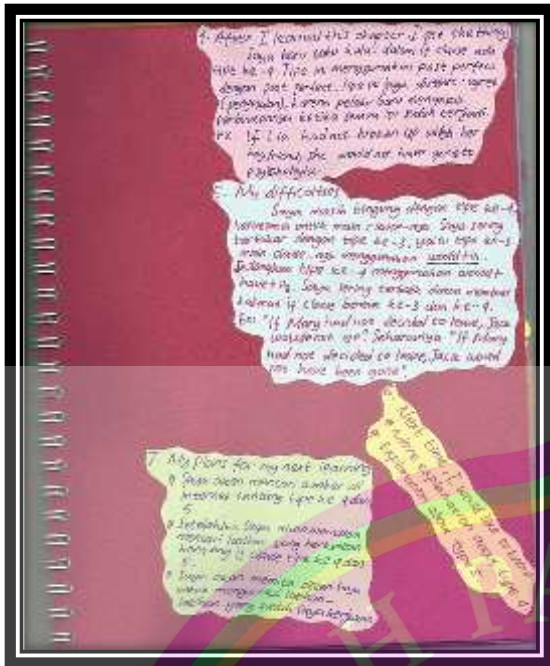 4. After I learned this chapter, I got the thing
Saya baru tahu kalau dalam if clause ada
tipe ke-4. Tipe ini menggunakan past perfect
dengan past perfect. Tipe ini juga disebut
(penyesalan), karena pelaku baru
ketika semua itu sudah terjadi.
Ex: If Lia had not broken up with her
boyfriend, she would not have gone to
psychologist.
5. My difficulties
Saya masih bingung dengan tipe ke-4,
terutama untuk main clause-nya. Saya sering
tertukar dengan tipe ke-3, yaitu tipe ke-3
main clause-nya menggunakan would+V1.
Sedangkan tipe ke-4 menggunakan would+
have+V3. Saya sering terbalik dalam membuat
kalimat if clause bentuk ke-3 dan ke-4.
Ex: "If Mary had not decided to leave, Jack
would not go". Seharusnya "If Mary
had not decided to leave, Jack would
not have been gone".
6. Next time, I would like to learn
more explanation about type 4
Explanation about type 5
7. My plans for my next learning
Saya akan mencari sumber di
internet tentang tipe ke 4 dan
5.
Setelah itu saya akan
mencari latihan yang berkaitan
tentang if clause tipe ke 4 dan
5.
Saya akan meminta dosen saya
untuk mengoreksi latihan-
latihan yang sudah saya kerjakan
H I